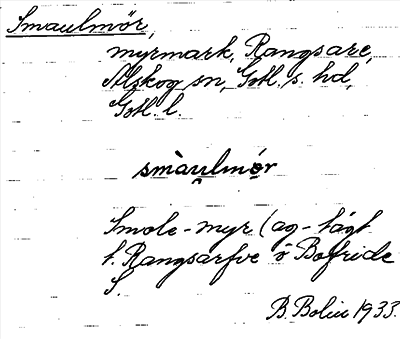 Smaulmör,
myrmark, Rangsare,
Alskog sn, Gotl. s. hd,
Gotl. l.
smàulmǿr
Smole-myr (äg-lågt
t. Rangsarfve o Bofride
S.
B. Bolin 1933.